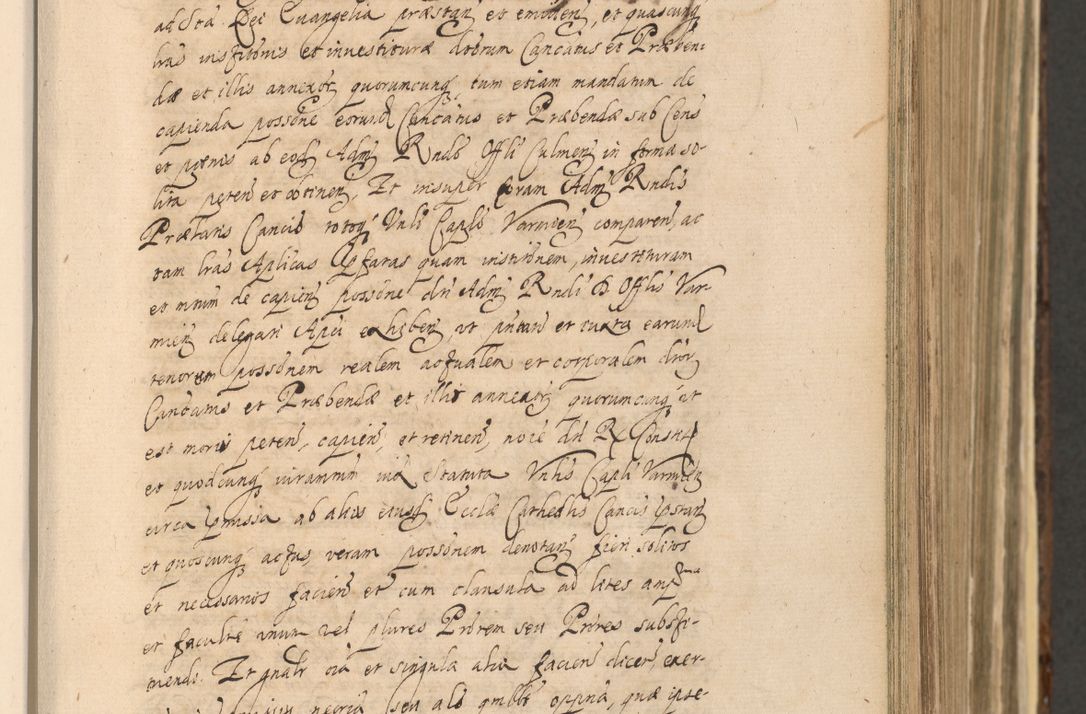 ad Sta Dei Euangelia præstan et emitten, et quascunq
lras institönis et inuestituræ dtorum Cancätus et Præben-
dæ et illis annexor quorumcunq tum etiam mandatum de
capienda possöne eorund Cancätus et Præbendæ sub Cens
et pœnis ab eod Adm Rndö Offli Culmen in forma so-
lita peten et obtinen, Et insuper coram Adm Rndis
Prælatis Cancis totoq Vnli Caplö Varmien comparen, ac
tam lras Aplicas pfatas quam institönem, inuestituram
et mtum de capien possöne dti Adm Rndi D Offlis Var-
mien delegati Aplci exhiben, vt putan et iuxta earund
tenorem possönem realem actualem et corporalem dtor
Cancätus et Præbendæ et illis annexor quorumcunq ut
est moris peten, capien, et retinen, noie dti Rx Constis
et quodcunq iuramtum iux Statuta Vnlis Capli Varmien
circa pmissa ab aliis eiusd Ecclæ Cathedlis Cancis pstari
et quoscunq actus, veram possönem denotan, fieri solitos
et necessarios facien et cum clausula ad lites ampma
et facultë vnum vel plures Prörem seu Pröres substi-
tuendi. Et gnalr oia et singula alia facien dicen exer-
neçria seu alö qmlbt oppna, quæ ipse-